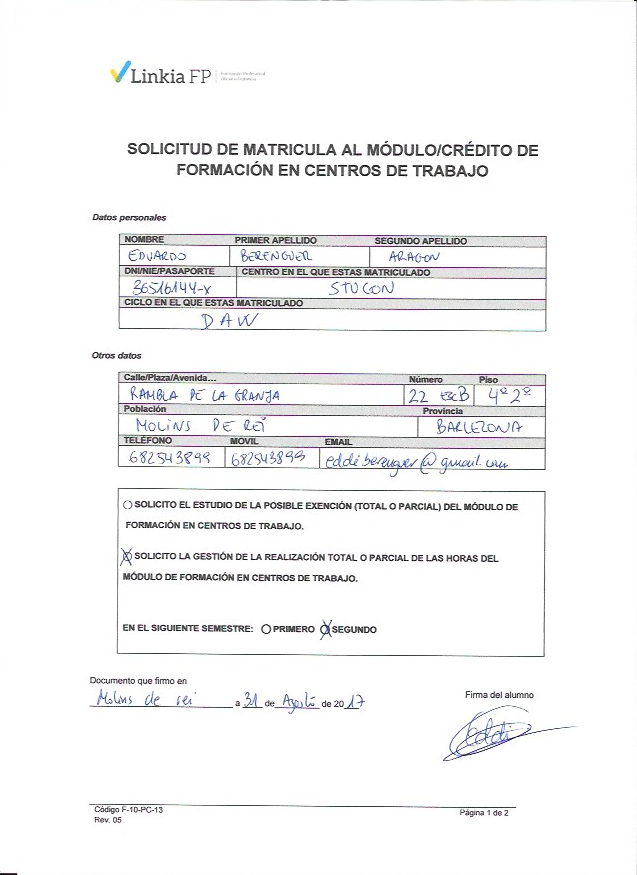 Linkia FP
Formación Profesional
Oficial a Distancia
SOLICITUD DE MATRICULA AL MÓDULO/CRÉDITO DE
FORMACIÓN EN CENTROS DE TRABAJO
Datos personales
NOMBRE PRIMER APELLIDO SEGUNDO APELLIDO
EDUARDO BERENGUER ARAGON
DNI/NIE/PASAPORTE CENTRO EN EL QUE ESTAS MATRICULADO
36516144-X STUCON
CICLO EN EL QUE ESTAS MATRICULADO
DAW
Otros datos
Calle/Plaza/Avenida... Número Piso
RAMBLA DE LA GRANJA 22 ESCB 4º 2º
Población Provincia
MOLINS DE REI BARCELONA
TELÉFONO MOVIL EMAIL
682543899 682543899 eddiberenguer@gmail.com
SOLICITO EL ESTUDIO DE LA POSIBLE EXENCIÓN (TOTAL O PARCIAL) DEL MÓDULO DE
FORMACIÓN EN CENTROS DE TRABAJO.
SOLICITO LA GESTIÓN DE LA REALIZACIÓN TOTAL O PARCIAL DE LAS HORAS DEL
MÓDULO DE FORMACIÓN EN CENTROS DE TRABAJO.
EN EL SIGUIENTE SEMESTRE: PRIMERO SEGUNDO
Documento que firmo en
Molins de rei a 31 de Agosto de 2017
Firma del alumno
Eddi
Código F-10-PC-13
Rev. 05
Página 1 de 2